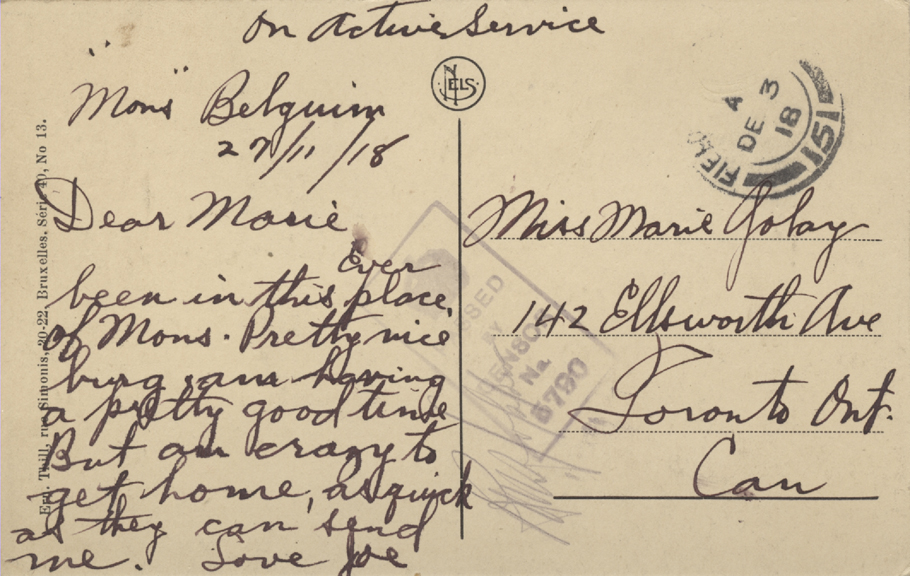 On Active Service
"Mons" Belguim
27/11/18
Dear Marie
Ever
been in this place
of Mons. Pretty nice
burg, am having
a pretty good time
But am crazy to
get home, as quick
as they can send
me. Love Joe
NELS
FIELD
A
DE 3
18
151
Miss Marie Golay
142 Ellsworth Ave
Toronto Ont.
Can
PASSED
BY
CENSOR
No.
5790
Ern. Thill, rue Simonis, 20-22, Bruxelles. Série 40, No 13.